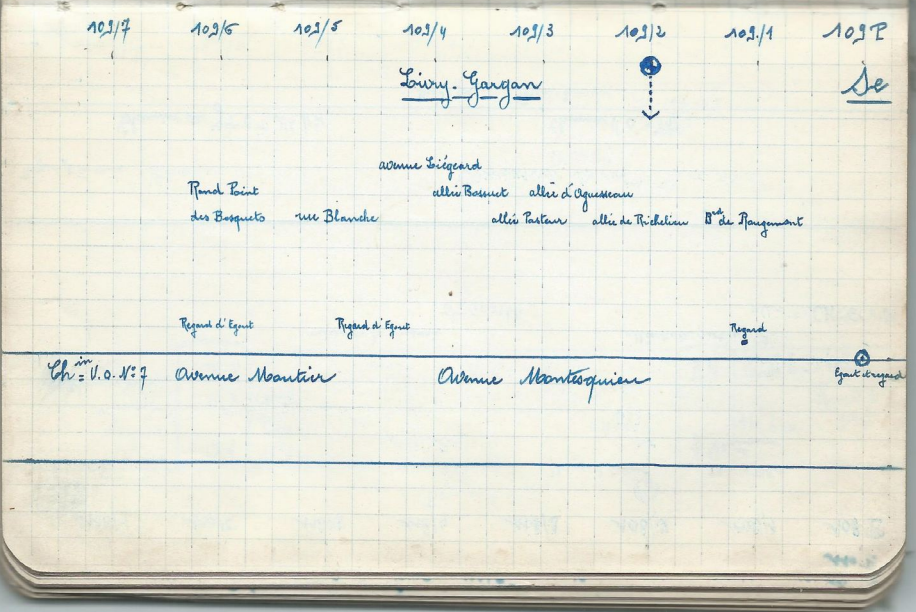 109/7 109/6 109/5 109/4 109/3 109/2 109/1 109P
Livry-Gargan Se
avenue Liégeard
Rond Point allée Bossuet allée d'Aguesseau
des Bosquets rue Blanche allée Pasteur allée de Richelieu Brd de Rougemont
Regard d'Egout Regard d'Egout Regard
Chin V.O. N° 7 Avenue Moutier Avenue Montesquieu Egout et regard